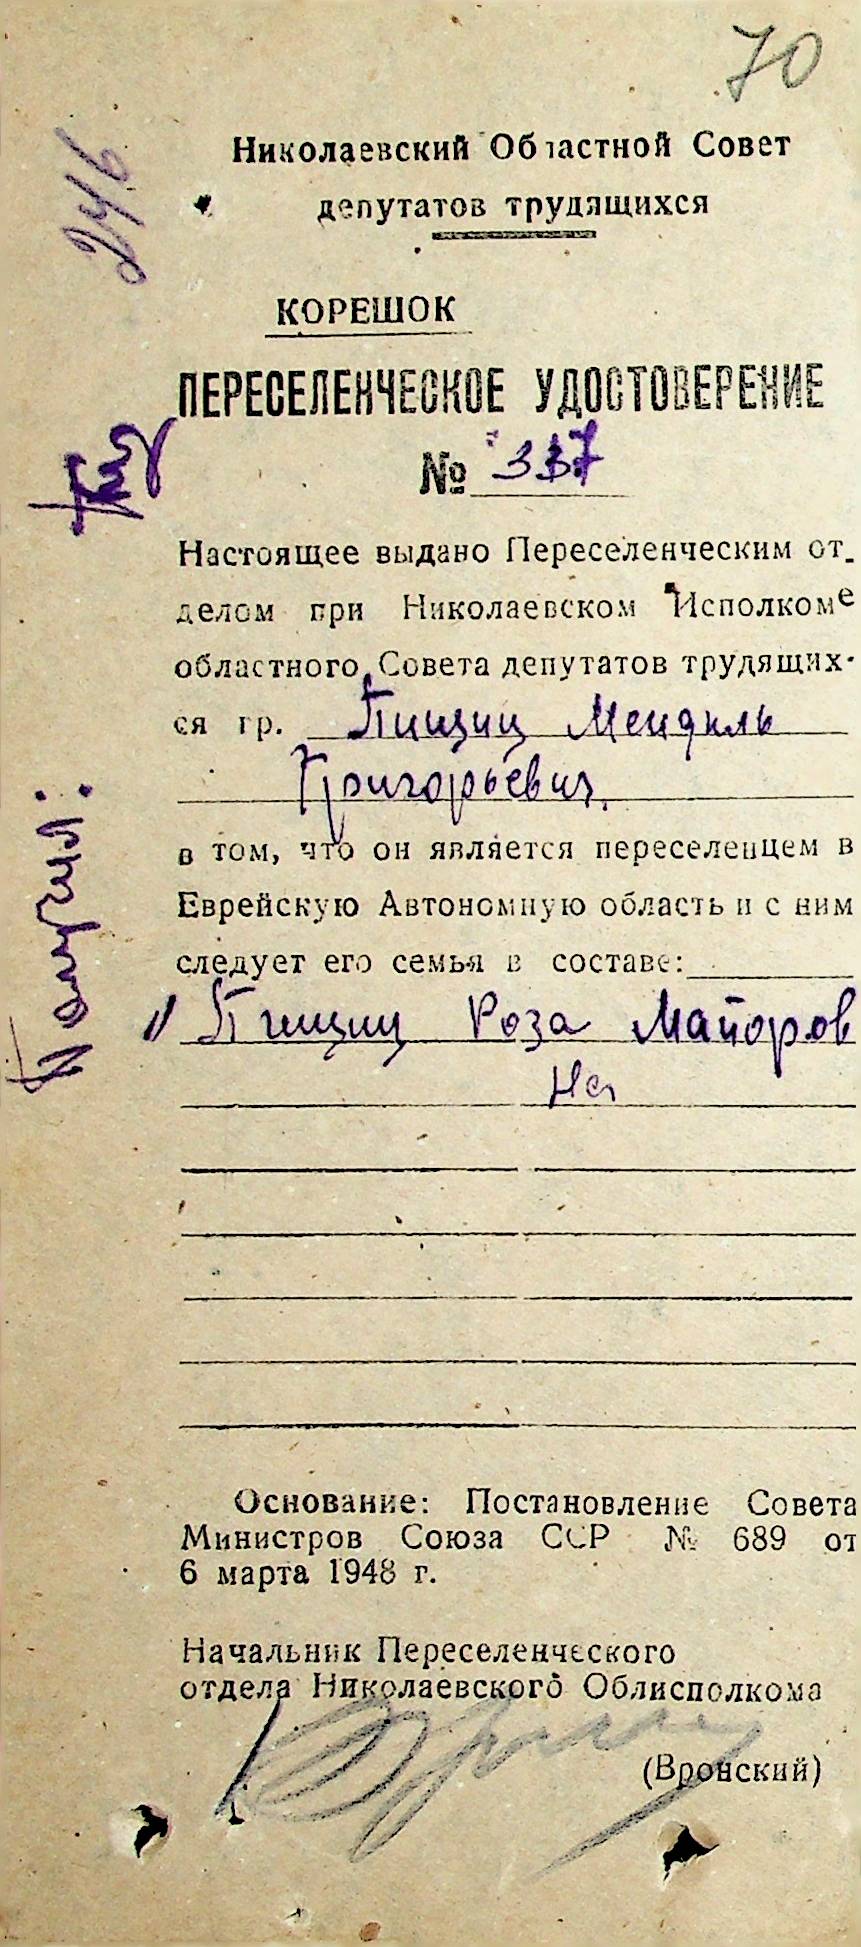 70
246
Николаевский Областной Совет
депутатов трудящихся
КОРЕШОК
ПЕРЕСЕЛЕНЧЕСКОЕ УДОСТОВЕРЕНИЕ
№ 337
Настоящее выдано Переселенческим от-
делом при Николаевском Исполкоме
областного Совета депутатов трудящих-
ся гр. Пищиц Мендиль
Григорьевич.
в том, что он является переселенцем в
Еврейскую Автономную область и с ним
следует его семья в составе:
Получил:
1) Пищиц Роза Майоров
на
Основание: Постановление Совета
Министров Союза ССР № 689 от
6 марта 1948 г.
Начальник Переселенческого
отдела Николаевского Облисполкома
(Вронский)